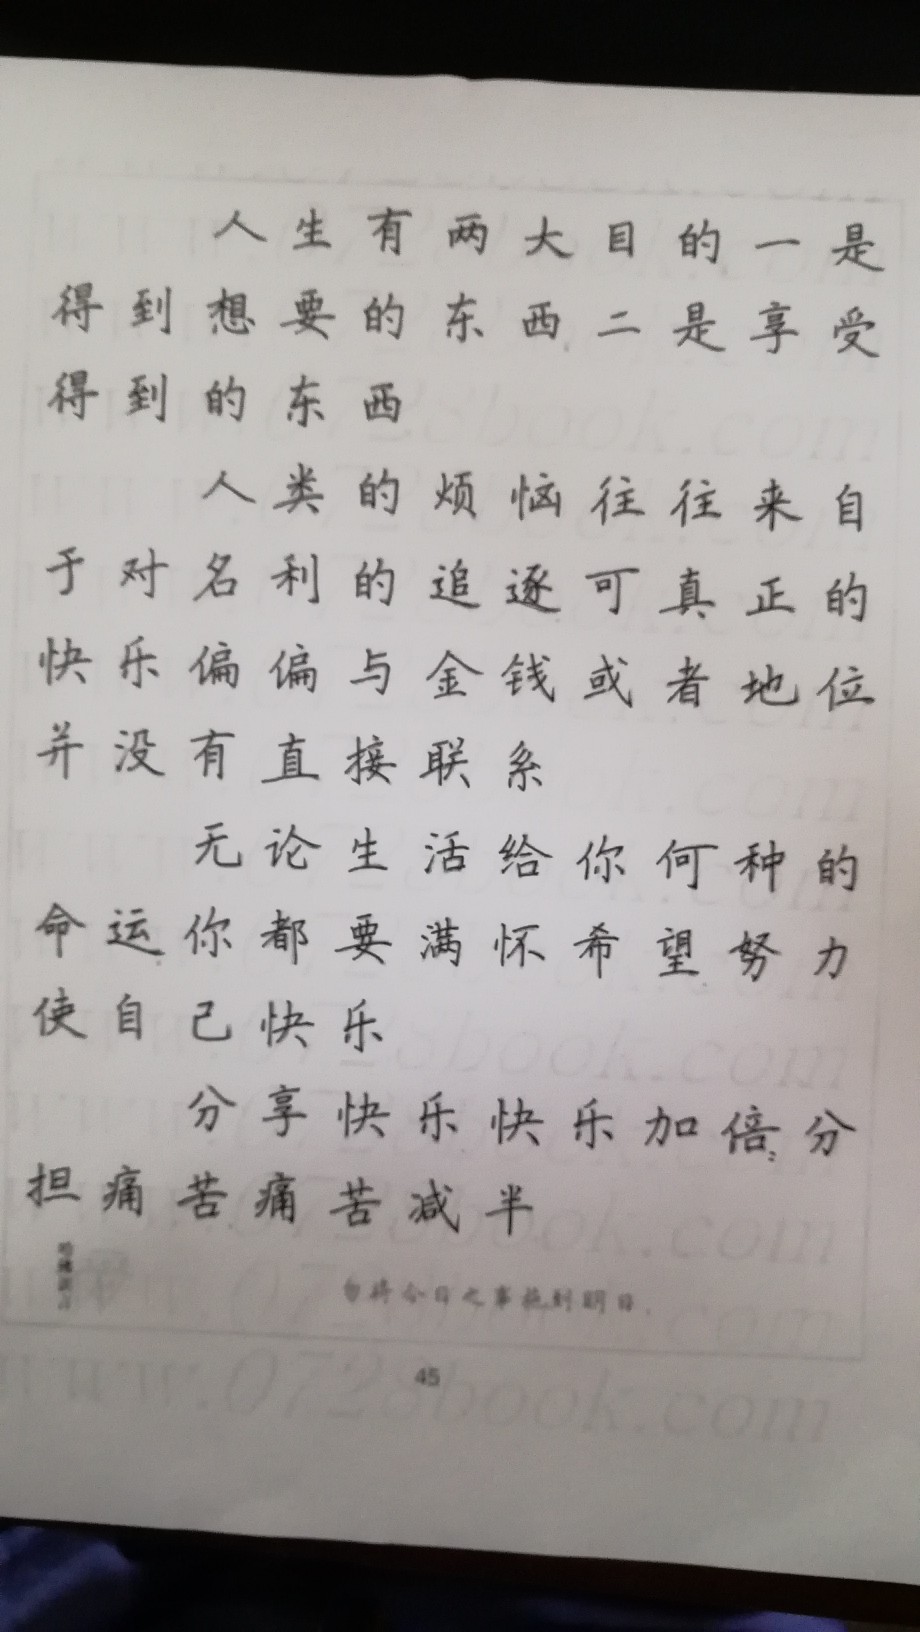 人生有两大目的一是
得到想要的东西二是享受
得到的东西
人类的烦恼往往来自
于对名利的追逐可真正的
快乐偏偏与金钱或者地位
并没有直接联系
无论生活给你何种的
命运你都要满怀希望努力
使自己快乐
分享快乐快乐加倍分
担痛苦痛苦减半
勿将今日之事拖到明日
45
www.0728book.com